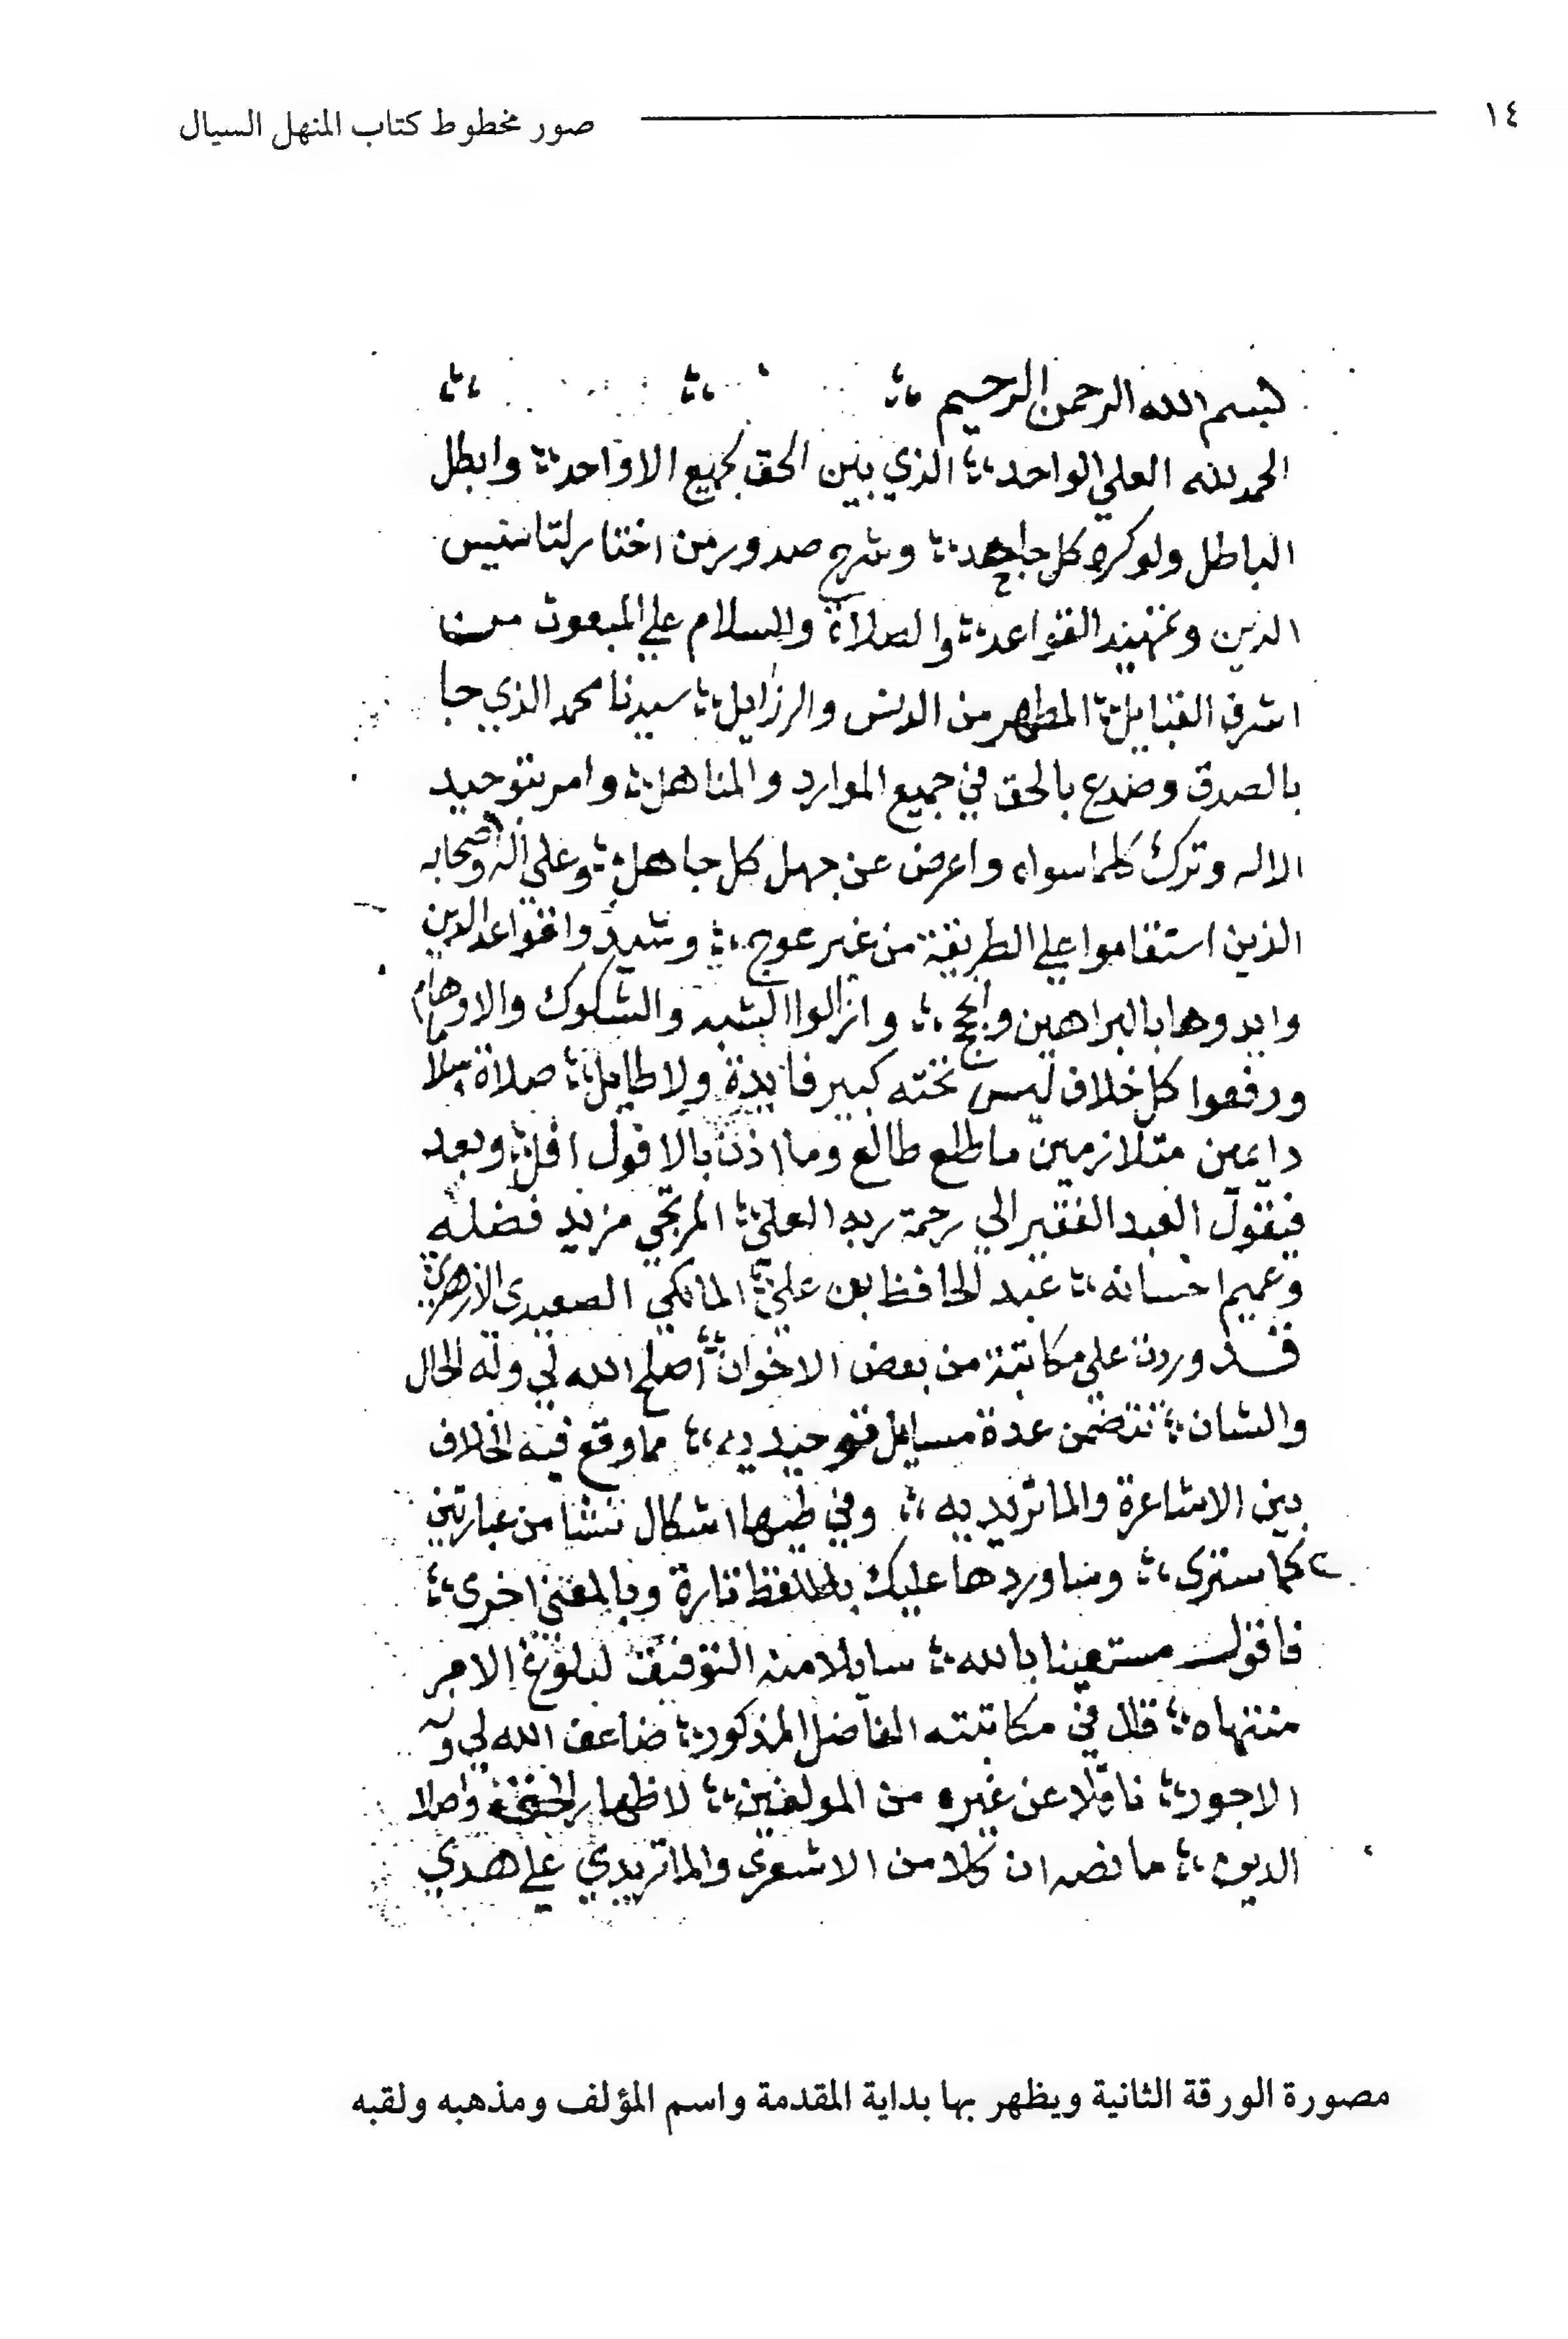 ١٤
صور مخطوط كتاب المنهل السيال
بسم الله الرحمن الرحيم
الحمد لله العلي الواحد الذي بين الحق لجميع الاواحد وابطل
الباطل ولو كره كل جاحد وشرح صدور من اختار لتاسيس
الدين وتمهيد القواعد والصلاة والسلام علي المبعوث من
اشرف القبايل المطهر من الدنس والرزايل سيدنا محمد الذي جا
بالصدق وصدع بالحق في جميع الموارد والمناهل وامر بتوحيد
الاله وترك كلما سواه واعرض عن جهل كل جاهل وعلي اله واصحابه
الذين استقاموا علي الطريقة من غير عوج وشيدوا قواعد الدين
وايدوها بالبراهين والحجج وازالوا الشبه والشكوك والاوهام
ورفعوا كل خلاف ليس تحته كبير فايدة ولا طايل صلاة وسلاما
دايمين متلازمين ما طلع طالع وما اذن بالافول افل وبعد
فيقول العبد الفقير الي رحمة ربه العلي المرتجي مزيد فضله
وعميم احسانه عبد الحافظ بن علي المالكي الصعيدي الازهري
قد وردت علي مكاتبة من بعض الاخوان اصلح الله لي وله الحال
والشان تتضمن عدة مسايل توحيديه مما وقع فيه الخلاف
بين الاشاعرة والماتريديه وفي طيها اشكال تنشا من عبارتين
كما ستري وساوردها عليك باللفظ تارة وبالمعني اخري
فاقول مستعينا بالله سايلا منه التوفيق لبلوغ الامر
منتهاه قال في مكاتبته الفاضل المذكور ضاعف الله لي وله
الاجور ناقلا عن غيره من المولفين لاظهار واصلا
الدين ما نصه ان كلا من الاشعري والماتريدي علي هدي
مصورة الورقة الثانية ويظهر بها بداية المقدمة واسم المؤلف ومذهبه ولقبه